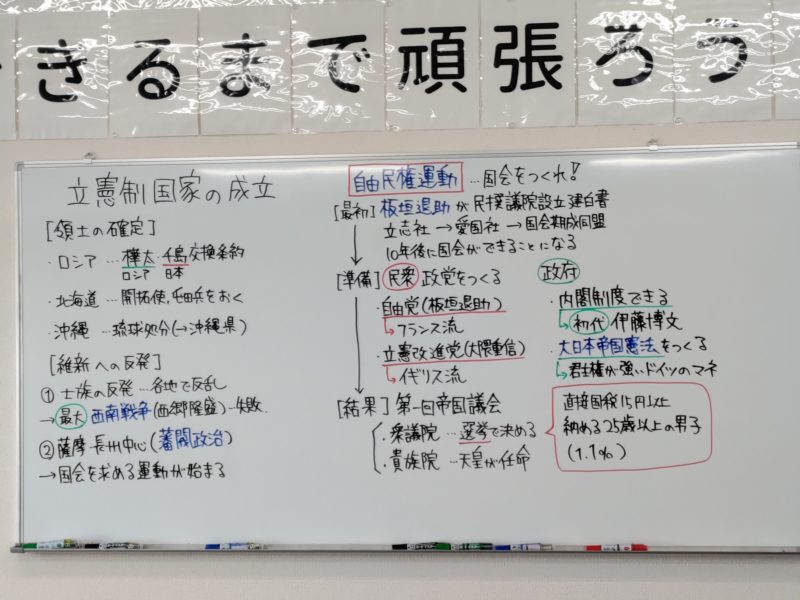 きるまで頑張ろう
立憲制国家の成立
[領土の確定]
・ロシア…樺太・千島交換条約
ロシア 日本
・北海道…開拓使、屯田兵をおく
・沖縄…琉球処分(→沖縄県)
[維新への反発]
① 士族の反発…各地で反乱
→最大 西南戦争(西郷隆盛)…失敗
②薩摩・長州中心(藩閥政治)
→国会を求める運動が始まる
自由民権運動…国会をつくれ!
[最初] 板垣退助が民撰議院設立建白書
立志社→愛国社→国会期成同盟
10年後に国会ができることになる
[準備] 民衆 政党をつくる
・自由党(板垣退助)
↳フランス流
・立憲改進党(大隈重信)
↳イギリス流
政府
・内閣制度できる
↳初代 伊藤博文
・大日本帝国憲法をつくる
↳君主権が強いドイツのマネ
[結果] 第一回帝国議会
・衆議院…選挙で決める
・貴族院…天皇が任命
直接国税15円以上
納める25歳以上の男子
(1.1%)